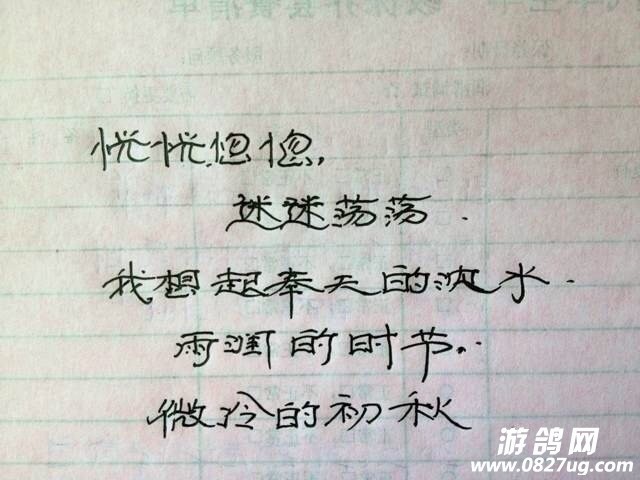 恍恍惚惚,
迷迷荡荡.
我想起奉天的沈水.
雨润的时节。
微冷的初秋
游鸽网
www.0827ug.com